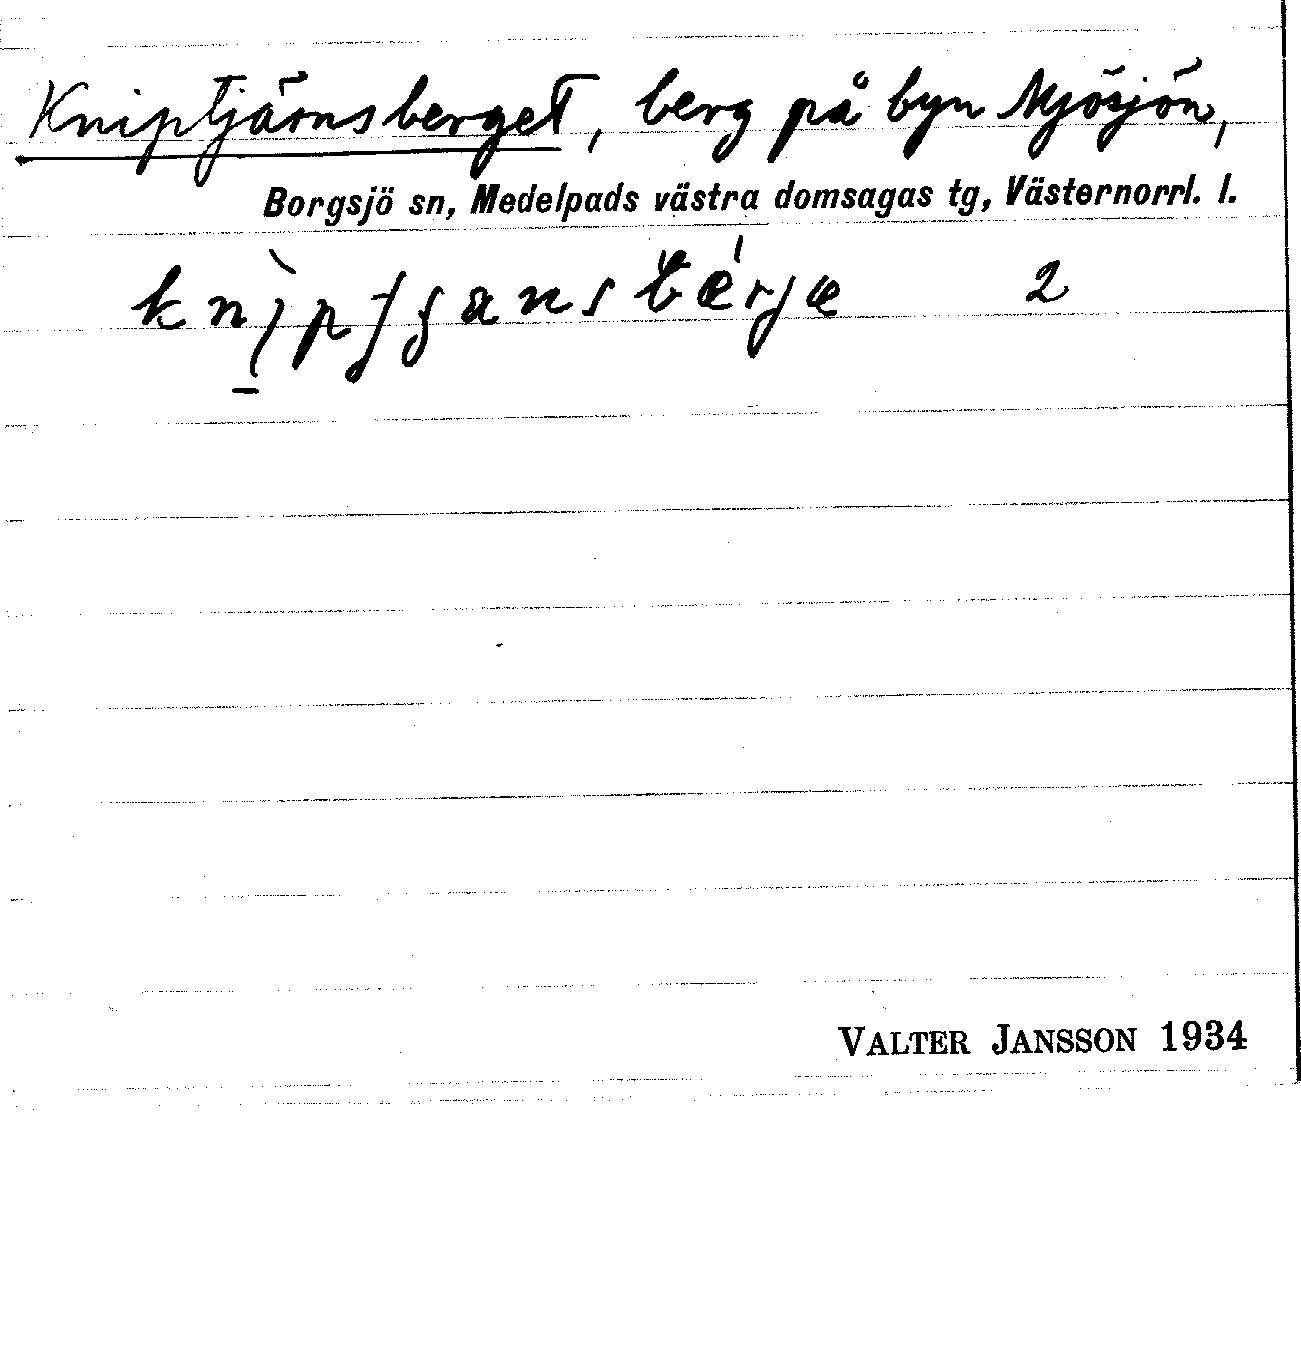 Kniptjärnsberget, berg på byn Mjösjön,
Borgsjö sn, Medelpads västra domsagas tg, Västernorrl. l.
2
VALTER JANSSON 1934